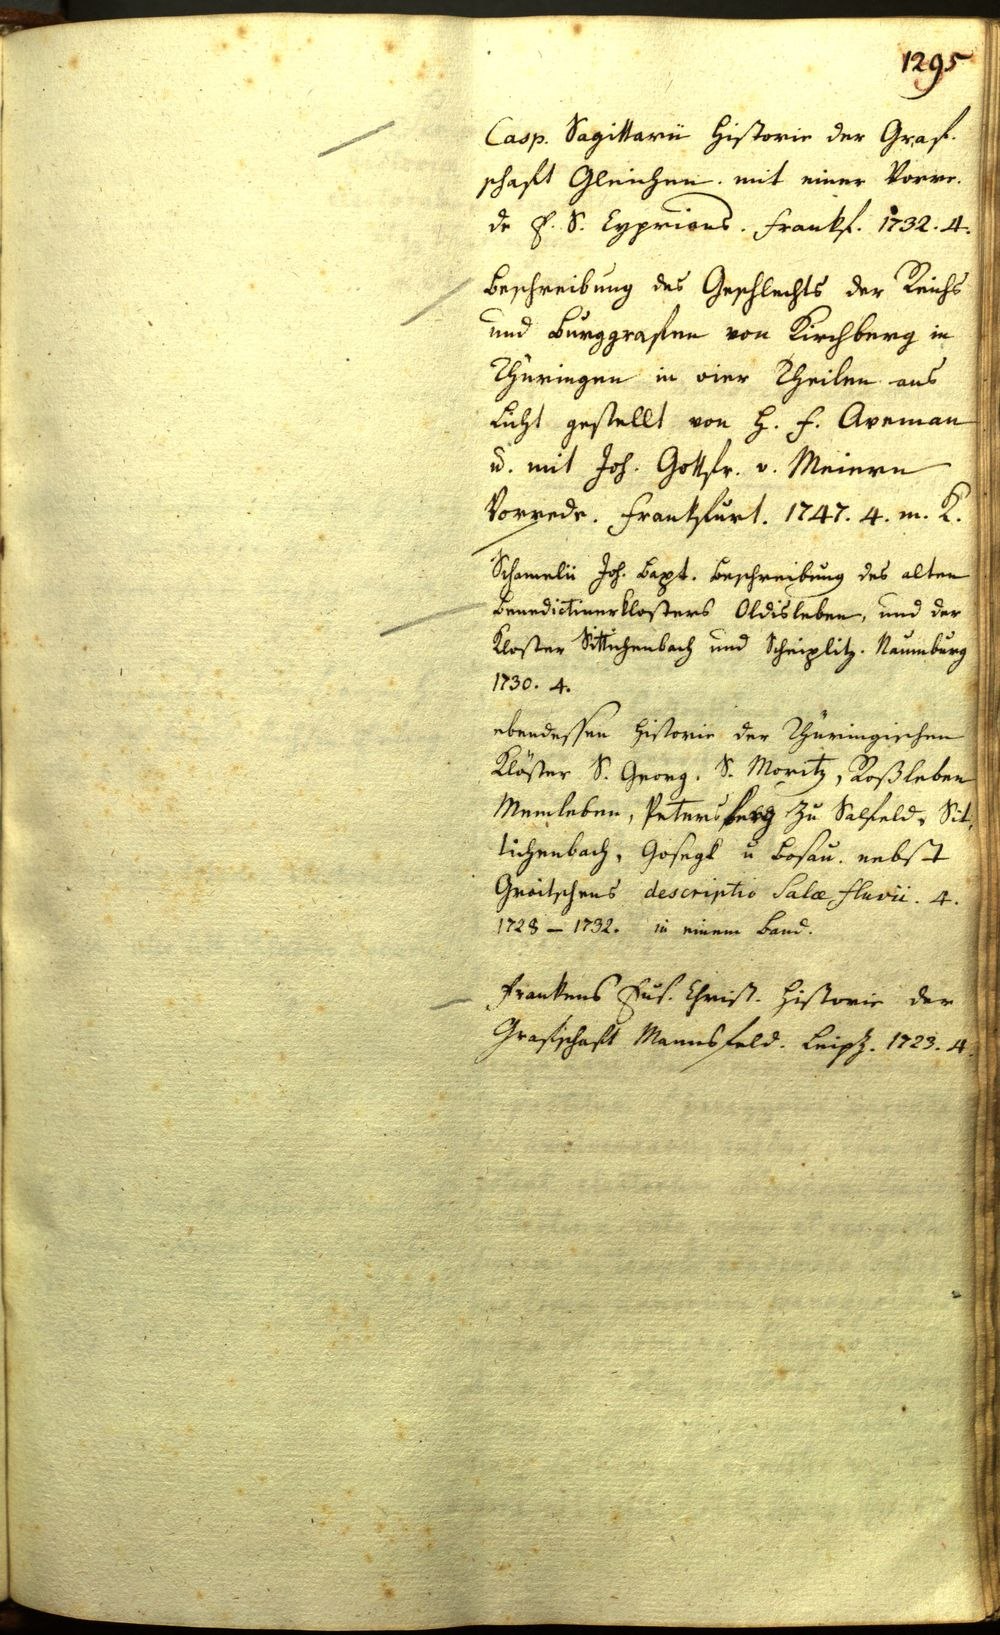 1295
Casp. Sagittarii Historie der Graf-
schaft Gleichen. mit einer Vorre-
de E. S. Cyprians. Frankf. 1732. 4.
Beschreibung des Geschlechts der Reichs
und Burggrafen von Kirchberg in
Thüringen in vier Theilen ans
Licht gestellt von H. F. Aveman
u. mit Joh. Gottfr. v. Meiern
Vorrede. Frankfurt. 1747. 4. m. K.
Schamelii Joh. Bapt. Beschreibung des alten
Benedictinerklosters Oldisleben, und der
Kloster Sittichenbach und Scheiplitz. Naumburg
1730. 4.
ebendessen Historie der Thüringischen
Klöster S. Georg. S. Moritz, Roßleben
Memleben, Petersberg zu Salfeld, Sit-
tichenbach, Gosegk u Bosau. nebst
Groitschens descriptio Salæ fluvii. 4.
1728 – 1732. in einem Band.
Frankens Eus. Christ. Historie der
Grafschaft Mannsfeld. Leipz. 1723. 4.